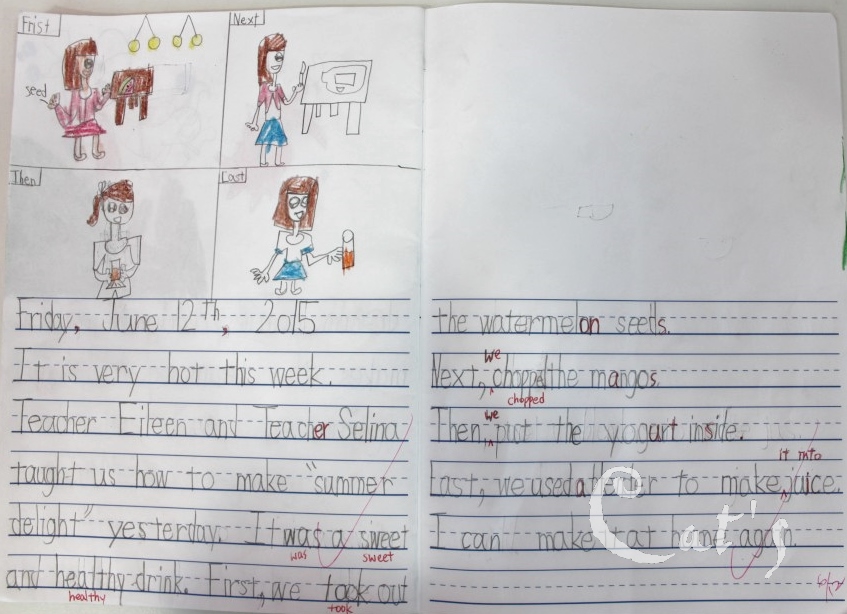 Frist
Next
seed
Then
Last
Friday, June 12th, 2015
It is very hot this week.
Teacher Eileen and Teacher Selina
taught us how to make "summer
delight" yesterday. It was a sweet
was sweet
and healthy drink. First, we took out
healthy took
the watermelon seeds.
we
Next, chopped the mangos.
chopped
we
Then put the yogurt inside.
it into
Last, we used a to make juice.
I can make that again.
Cat's
6/12